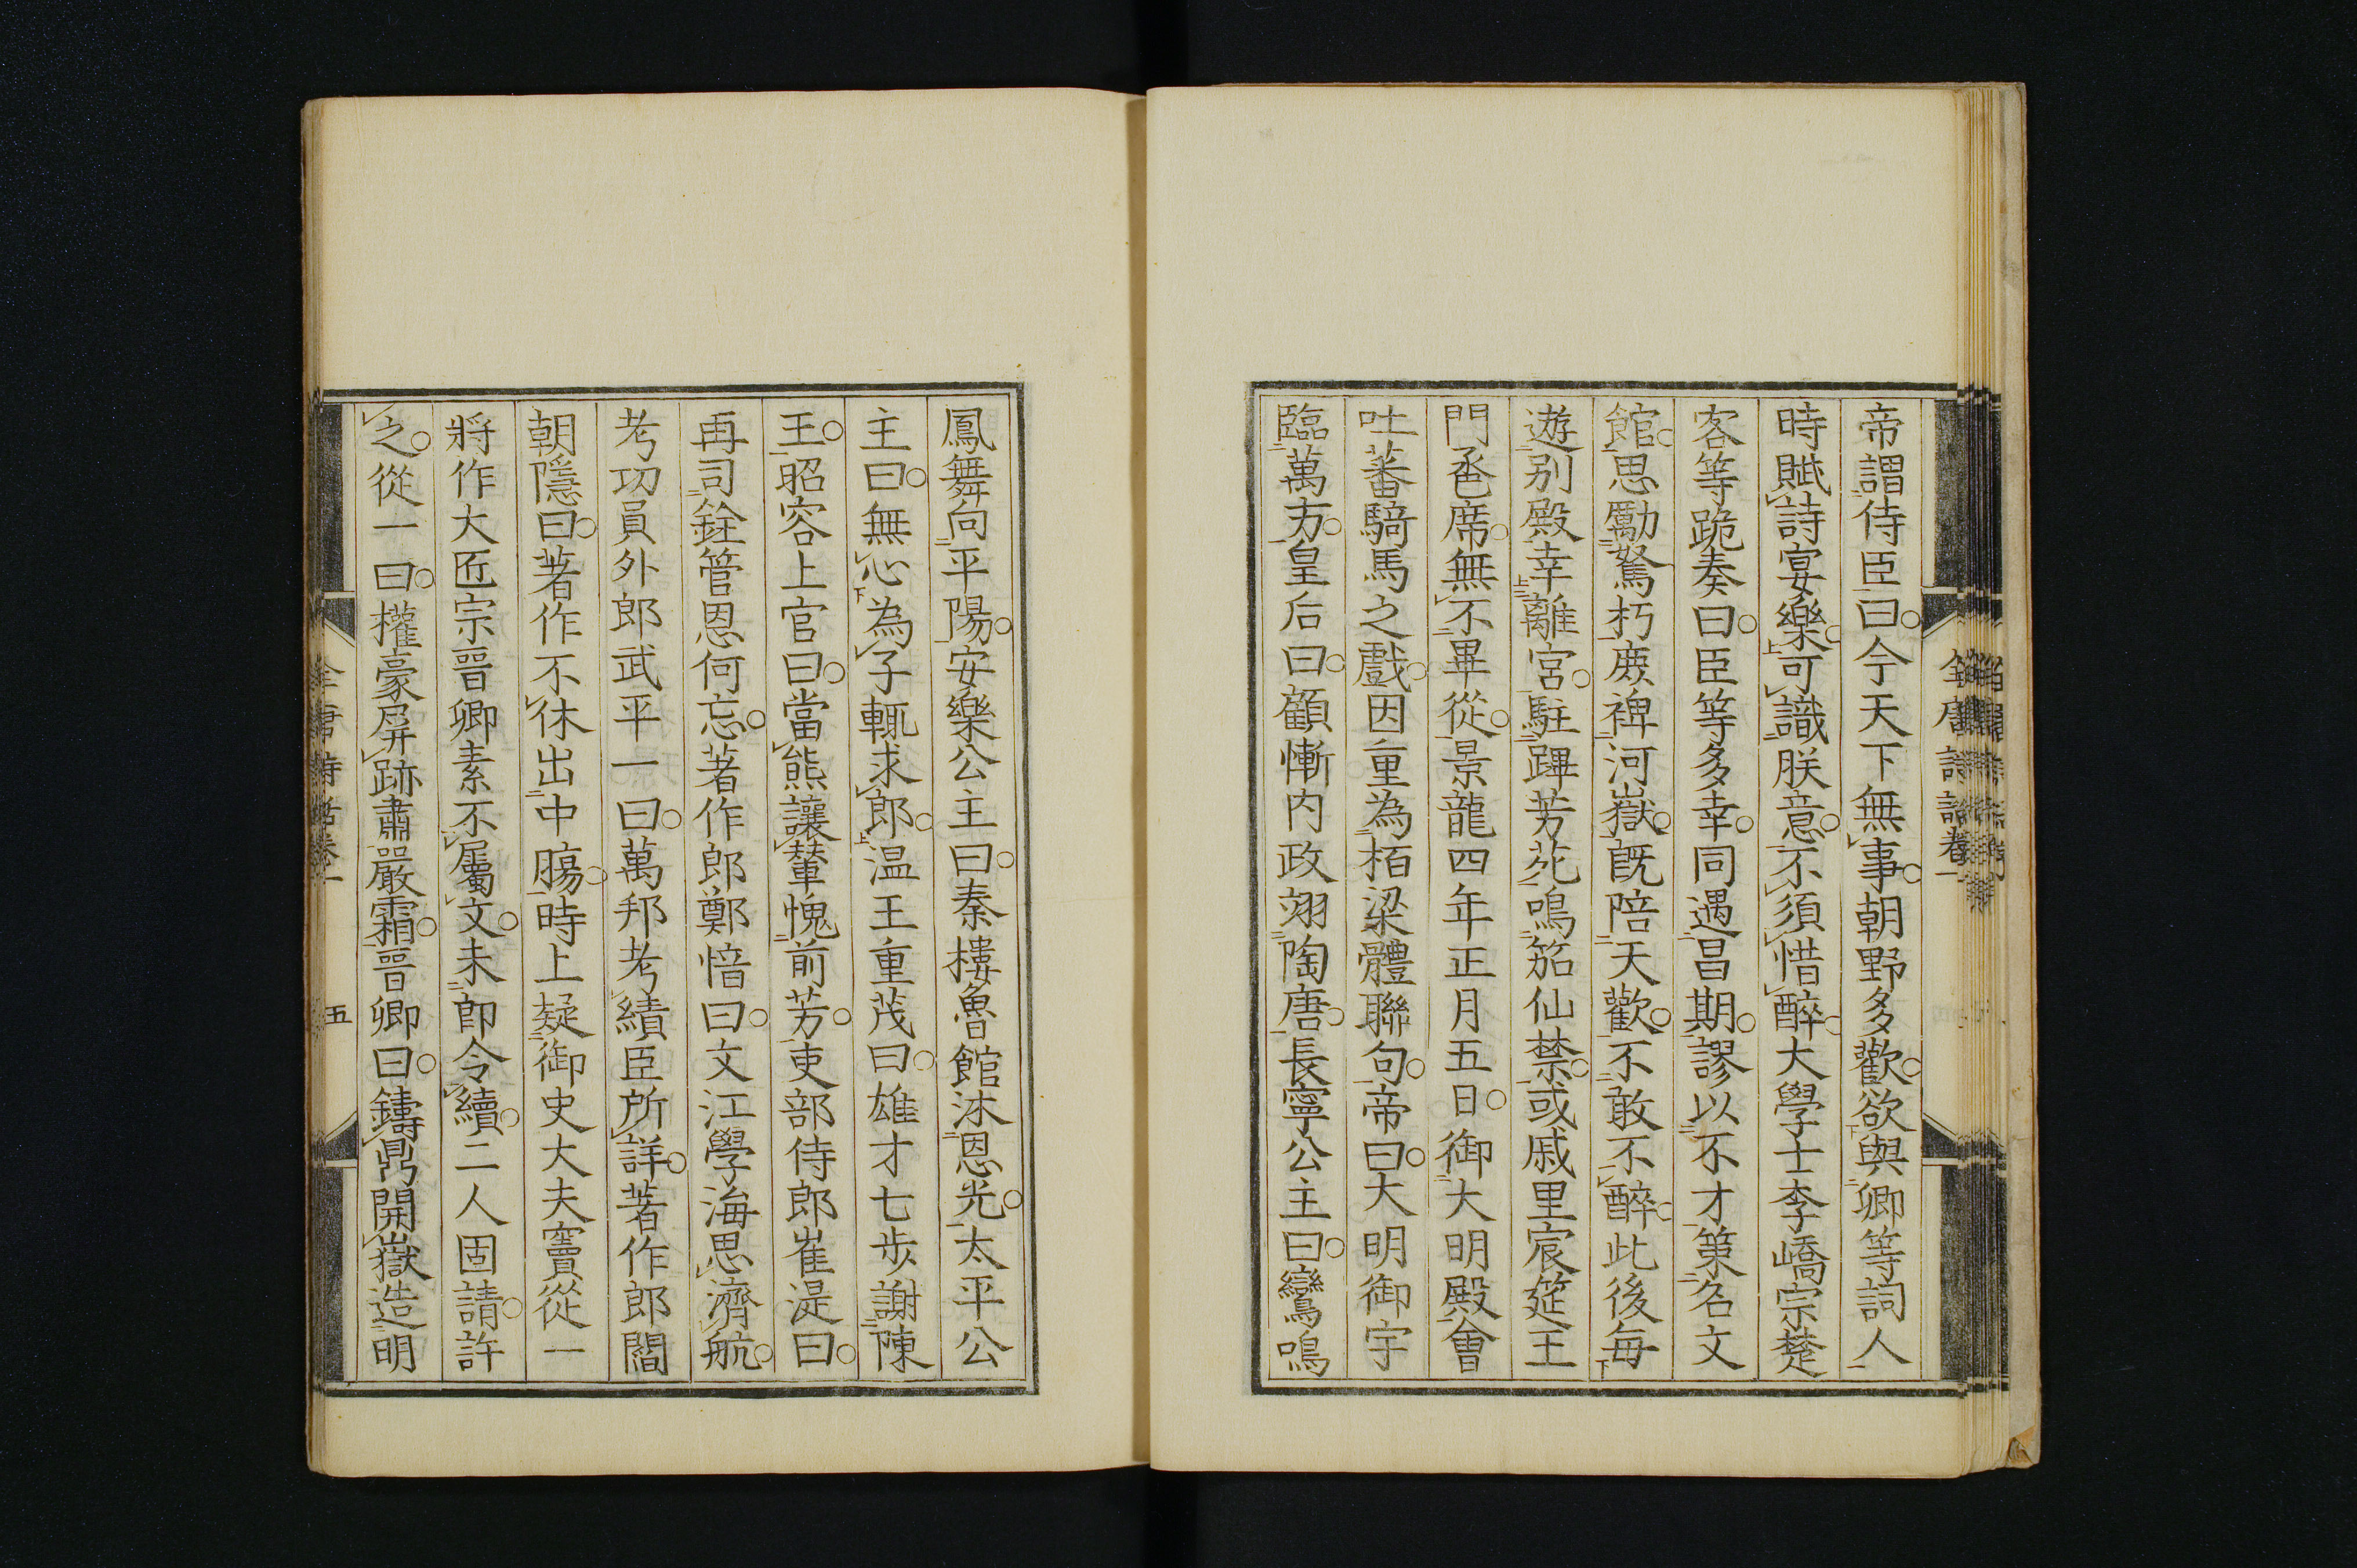 帝謂侍臣曰今天下無事朝野多歡欲與卿等詞人
時賦詩宴樂可識朕意不須惜醉大學士李嶠宗楚
客等跪奏曰臣等多幸同遇昌期謬以不才策名文
館思勵駑朽庶裨河嶽既陪天歡不敢不醉此後每
遊别殿幸離宮駐蹕芳苑鳴笳仙禁或戚里宸筵王
門巹席無不畢從景龍四年正月五日御大明殿會
吐蕃騎馬之戲因重為栢梁體聯句帝曰大明御宇
臨萬方皇后曰顧慚内政翊陶唐長寧公主曰鸞鳴
鳳舞向平陽安樂公主曰秦樓魯館沐恩光太平公
主曰無心為子輒求郎温王重茂曰雄才七步謝陳
王昭容上官曰當熊讓輦愧前芳吏部侍郎崔湜曰
再司銓管恩何忘著作郎鄭愔曰文江學海思濟航
考功員外郎武平一曰萬邦考績臣所詳著作郎閻
朝隱曰著作不休出中膓時上疑御史大夫竇從一
將作大匠宗晋卿素不屬文未即令續二人固請許
之從一曰權豪屏跡肅嚴霜晋卿曰鑄鼎開嶽造明
全唐詩話卷一
五